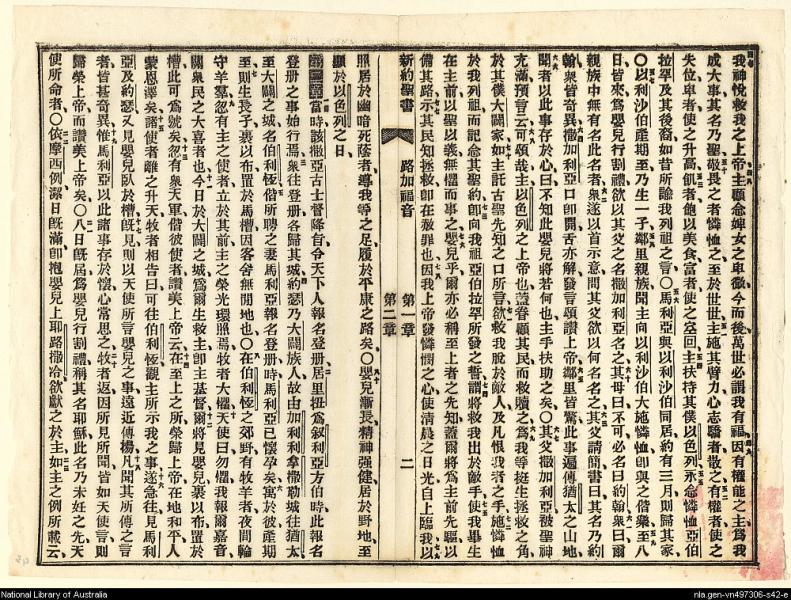 我神悅救我之上帝主顧念婢女之卑微今而後萬世必謂我有福因有權能之主爲我
成大事其名乃聖敬畏之者憐恤之至於世世主施其臂力心志驕者散之有權者使之
失位卑者使之升高飢者飽以美食富者使之空回主扶持其僕以色列永念憐恤亞伯
拉罕及其後裔如昔所諭我列祖之言〇馬利亞與以利沙伯同居約有三月則歸其家
〇以利沙伯產期至乃生一子鄰里親族聞主向以利沙伯大施憐恤卽與之偕樂至八
日皆來爲嬰兒行割禮欲以其父之名撒加利亞名之其母曰不可必名曰約翰衆曰爾
親族中無有名此名者衆遂以首示意問其父欲以何名名之其父請簡書曰其名乃約
翰衆皆奇異撒加利亞口卽開舌亦解發言頌讚上帝鄰里皆驚此事遍傳猶太之山地
聞者以此事存於心曰不知此嬰兒將若何也主手扶助之矣〇其父撒加利亞被聖神
充滿預言云可頌哉主以色列之上帝也蓋眷顧其民而救贖之爲我等挺生拯救之角
於其僕大闢家如主託古聖先知之口所言欲救我脫於敵人及凡恨我者之手施憐恤
於我列祖而記念其聖約卽向我祖亞伯拉罕所發之誓謂將救我出於敵手使我畢生
在主前以聖以義無懼而事之嬰兒乎爾亦必稱至上者之先知蓋爾將爲主前先驅以
備其路示其民知拯救卽在赦罪也因我上帝發憐憫之心使清晨之日光自上臨我以
新約聖書 路加福音 第一章 第二章 二
照居於幽暗死蔭者導我等之足履於平康之路矣〇嬰兒漸長精神强健居於野地至
顯於以色列之日
當時該撒亞古士督降旨令天下人報名登册居里扭爲叙利亞方伯時此報名
登册之事始行焉衆往登册各歸其城約瑟乃大闢族人故由加利利拿撒勒城往猶太
至大闢之城名伯利恆偕所聘之妻馬利亞報名登册時馬利亞已懷孕矣寓於彼產期
至則生長子裹以布置于馬槽因客舍無閒地也〇在伯利恆之郊野有牧羊者夜間輪
守羊羣忽有主之使者立於其前主之榮光環照焉牧者大懼天使曰勿懼我報爾嘉音
關衆民之大喜者也今日於大闢之城爲爾生救主卽主基督爾將見嬰兒裹以布置於
槽此可爲號矣忽有衆天軍偕彼使者讚美上帝云在至上之所榮歸上帝在地和平人
蒙恩澤矣諸使者離之升天牧者相告曰可往伯利恆觀主所示我之事遂急往見馬利
亞及約瑟又見嬰兒臥於槽旣見則以天使所言嬰兒之事遠近傳楊凡聞其所傳之言
者皆甚奇異惟馬利亞以此諸事存於懷心常思之牧者返因所見所聞皆如天使言則
歸榮上帝而讚美上帝矣〇八日旣屆爲嬰兒行割禮稱其名耶穌此名乃未妊之先天
使所命者〇依摩西例潔日旣滿卽抱嬰兒上耶路撒冷欲獻之於主如主之例所載云
National Library of Australia
nla.gen-vn497306-s42-e